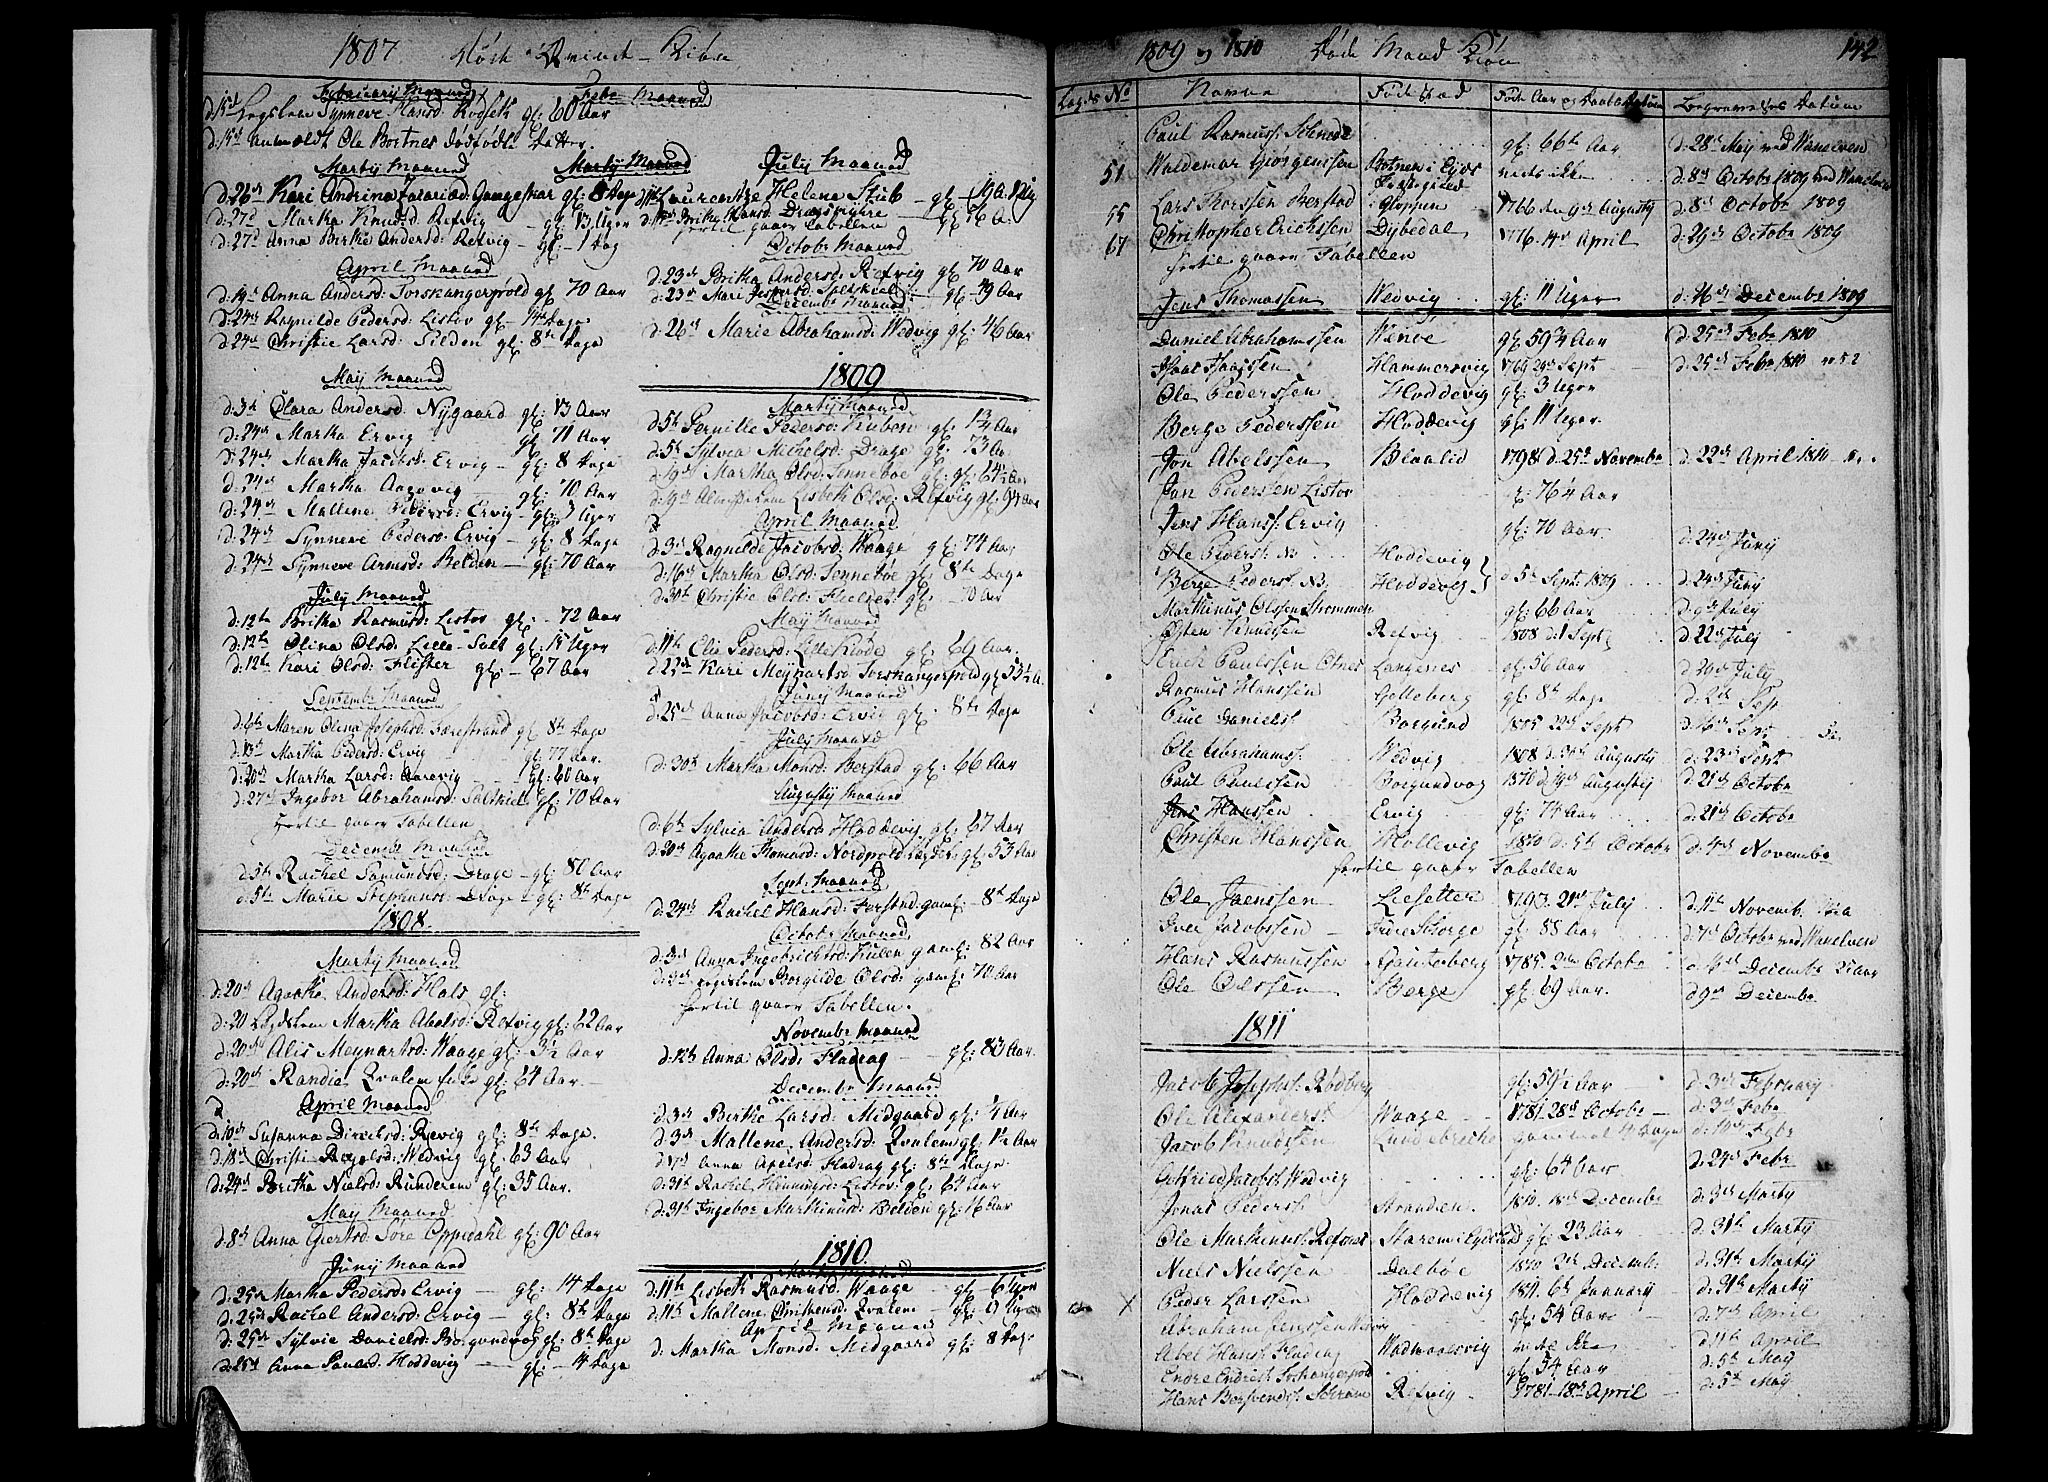 1807. Døde Qvinde-Kiøn
Februarij Maaned
d: 15d Lægslem Synneve Hansd: Rogseth gl: 60 Aar
d: 15d anmeldt Ole Bortnes dødfødte Datter.
Martij Maaned
d: 27d Martha Knudsd: Refvig - gl: 13 Uger
d: 27d Anna Berthe Andersd: Refvig - gl: 1 Dag
April Maaned
d: 19d Anna Andersd: Torskangerpold gl: 70 Aar
d: 24d Ragnilde Pedersd: Listov gl: 14 Dage
d: 24d Christie Larsd: Silden gl: 8te Dage
Maij Maaned
d: 3d Clara Andersd: Nygaard gl: 13 Aar
d: 24d Martha Ervig gl: 71 Aar
d: 24d Martha Jacobsd: Ervig - gl: 8 Dage
d: 24d Martha Aarevig - gl: 70 Aar
d: 24d Mallene Pedersd: Ervig - gl: 3 Uger
d: 24d Synneve Pedersd: Ervig - gl: 8 Dage
d: 24d Synneve Arnesd: Belden - gl: 70 Aar
July Maaned
d: 12te Britha Rasmusd: Listov gl: - 72 Aar
d: 12te Olina Olsd: Lille-Salt gl: 15 Uger
d: 12te Kari Olsd: Flister gl: - 67 Aar
Septembr Maaned
d: 6te Maren Olina Josephsd: Færestrand gl: 8te Dage
d: 13d Martha Pedersd: Ervig - gl: 77 Aar
d: 20d Martha Larsd: Aarevig - gl: 60 Aar
d: 27d Ingebor Abrahamsd: Saltkiel gl: 70 Aar
hertil gaaer Tabellen
Decembr Maaned
d: 5te Rachel Samundsd: Drage - gl: 80 Aar
d: 5te Marie Stephansd: Drage - gl: 8te Dage
1808.
Martij Maaned
d: 20d Agaathe Andersd: Hals gl:
d: 20 Lægdslem Martha Abelsd: Refvig gl: 62 Aar
d: 20d Alis Meynartsd: Waage gl: 3½ Aar
d: 20d Randie Qvalem Enke gl: 64 Aar -
April Maaned
d: 10d Susanna Dircksd: Revig gl: 8te Dage.
d: 18d Christi Wedvig gl: 63 Aar
d: 24d Britha Nielsd: Runderem gl: 35 Aar.
Maij Maaned
d: 8d Anna Giertsd: Søre Oppedahl gl: 90 Aar
Junij Maaned
d: 25d Martha Pedersd: Ervig - gl: 14 Dage
d: 25d Rachel Andersd: Ervig - gl: 8te Dage
d: 25d Sylvie Danielsd: Borgundvog gl: 8te Dage
d: 25d Anna Paulsd: Hoddevig - gl: - 4 Dage
Febr Maaned
Martij Maaned
July Maaned
Laurentze Helene Stub - gl:
hertil gaaer Tabellen
Octobr Maaned
d: 23d Britha Andersd: Refvig gl: 70 Aar
d: 23d Mari Jespersd: Saltskiel - gl: 49 Aar
Decembr Maaned
d: 26d Marie Abrahamsd: Wedvig gl: 46 Aar
1809
Martij Maaned
d: 5te Pernille Pedersd: Kuben gl: 1¾ Aar
d: 5te Sylvia Michelsd: Drage gl: 73 Aar
d: 19d Martha Olsd: Sennebøe gl: 64½ Aar
d: 19d Lisbeth Olsd: Refvig gl: 94 Aar
April Maaned
d: 3d Ragnilde Jacobsd: Waage gl: 74 Aar
d: 16d Martha Olsd: Sennebøe gl: 8te Dage
d: 30te Christie Olsd:
Maij Maaned
d: 11te Elie Pedersd: Lillekiøde gl: 69 Aar.
d: 22d Kari Meynartsd: Torskangerpold gl: 55½ A.
Junij Maaned
d: 25d Anna Jacobsd: Ervig gl: - 8te Dage
July Maaned
d: 30te Martha Monsd: Berstad gl: 66 Aar
Augustij Maaned
d: 6te Sylvia Andersd: Hoddevig gl: 67 Aar
d: 20d Agaathe Thomasd: Nordpold Lægdsl: gl: 53 Aar
Septr Maaned
d: 24d Rachel Hansd: Færstad gaml: - 8te Dage
Octobr Maaned
d: 3d Anna Ingebrichtsd: Kulen gaml: 82 Aar
Lægdslem Borgilde Olsd: gaml: 70 Aar
hertil gaaer Tabellen.
Novembr Maaned
d: 12te Anna Olsd: Fladrag - gl: 83 Aar.
Decembr Maaned
d: 3d Berthe Larsd: Midgaard gl: ¼ Aar
d: 3d Mallene Andersd: Qvalem gl: 1½ Aar
d: 17d Anna Abelsd: Fladrag gl: 8te Dage.
d: 31te Rachel Henningsd: Listov gl: 64 Aar
d: 31te Ingebor Marthinusd: Belden gl: 16 Aar
1810.
d: 11te Lisbeth Rasmusd: Waage - gl: 6
d: 11te Mallene Christensd: Qvalem - gl:
April Maaned
d: Martha Monsd: Midgaard gl: 8 Dage
1809 og 1810 Døde Mand Kiøn 142
Lægds No Navne Føde Stad Føde Aar og Daabs Datum Begravelses Datum
Paul Rasmuss: gl: 66te Aar d: 28d Maij ved Wanelven
51 Waldemar Giørgenssen vides ikke d: 8d Octobr 1809 ved Wanelven
55 Lars Thorssen Berstad i Gloppen 1766 den 9d Augustij d: 8d Octobr 1809
67 Christopher Erichssen Dybedal 1776. 14d April d: 29d Octobr 1809
hertil gaaer Tabellen
Jens Thomassen Wedvig gl: 11 Uger d: 16d Decembr 1809
Daniel Abrahamssen Wenøe gl: 59¼ Aar d: 25d Febr 1810
Isaac Isaacssen Hammersvig 1769 29d Septr d: 25d Febr 1810 No 52
Ole Pederssen Hoddevig gl: 3 Uger
Berge Pederssen Hoddevig gl: 11 Uger.
Jon Abelssen Blaalid 1798 d: 25d Novembr d: 22d April 1810
Jan Pederssen Listov gl: 76¼ Aar
Jens Hanss: Ervig gl: 70 Aar.
Ole Pederss: No Hoddevig d: 24d Junij
Berge Pederss: No Hoddevig d: 5d Septr 1809 d: 24d Junij
Marthinus Olssen Strommen gl: 66 Aar d: 9d Julij
Østen Knudssen Refvig 1808 d: 1 Septr d: 22d Julij
Erick Paulssen Otnes Langenes gl: 56 Aar d: 29d Julij
Rasmus Hanssen Golleberg gl: 8te Dage d: 2d Sep
Paul Danielss: Borgund 1805 22d Septr d: 16d Septr
Ole Abrahamss: Wedvig 1808 d: 31d Augustij d: 23d Septr
Paul Paulssen Borgundvog 1810 d: 19d Augustij d: 21d Octobr
Jens Hanssen Ervig gl: 74 Aar d: 21d Octobr
Christen Hanssen Hollevig 1810 d: 5te Octobr d: 4d Novembr
hertil gaaer Tabellen
Ole Jaenssen Liesetter 1793. 21d Julij d: 11te Novembr
Iver Jacobssen Indre Eborge gl: 88 Aar d: 7d Octobr ved Wanelven
Hans Rasmussen Gauteberg 1785. 2den Octobr d: 4d Decembr
Ole Olssen Berge gl: 69 Aar. d: 9d Decembr
1811
Jacob Josephss: Rødberg gl: 59½ Aar d: 3d February
Ole Alexanderss: Waage 1781 28d Octobr d: 3d Febr
Jacob Knudssen Lundebrekke gammel 4 Dage d: 10d Febr
Gotfried Jacobss: Wedvig gl: 64 Aar d: 24d Febr
Jonas Pederss: Stranden 1810. 18d Decembr d: 3d Martij
Ole Marthinuss: Refsnes gl: 23 Aar d: 31te Martij
Niels Nielssen Dalbøe 1810 2d Decembr d: 31te Martij
Peder Larssen Hoddevig 1811. 6te Januarij d: 31te Martij
Abraham Jenssen gl: 54 Aar d: 7d April
Abel Hanss: Fladrag Wadmaalsvig d: 11te April
Endre Endress: Torskangerpold gl: 54 Aar d: 5te Maij
Hans Refvig 1781 18d April d: 5te Maij